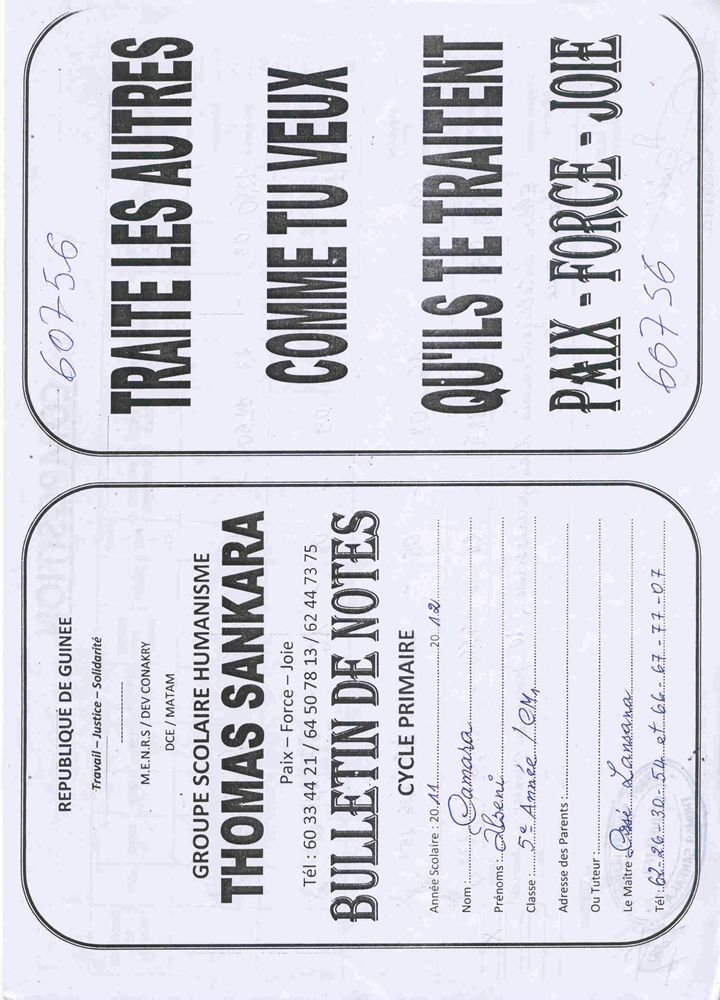 REPUBLIQUE DE GUINEE
Travail – Justice – Solidarité
M.E.N.R.S / DEV CONAKRY
DCE / MATAM
GROUPE SCOLAIRE HUMANISME
THOMAS SANKARA
Paix – Force – Joie
Tél : 60 33 44 21 / 64 50 78 13 / 62 44 73 75
BULLETIN DE NOTES
CYCLE PRIMAIRE
Année Scolaire : 2011 2012
Nom : Camara
Prénoms : Alseni
Classe : 5e Année / CM1
Adresse des Parents :
Ou Tuteur :
Le Maitre : Cissé Lansana
Tél : 62-26-30-54 et 66-67-77-07
60756
TRAITE LES AUTRES
COMME TU VEUX
QU'ILS TE TRAITENT
PAIX - FORCE - JOIE
60756